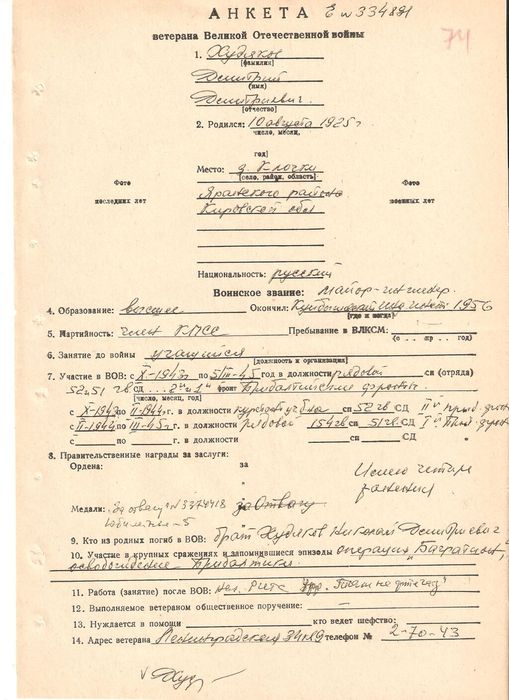 АНКЕТА
74
ветерана Великой Отечественной войны
1. Худяков
(фамилия)
Дмитрий
(имя)
Дмитриевич.
(отчество)
2. Родился: 10 августа 1925 г.
число, месяц,
год)
Место: д. Клочки
(село, район, область)
Фото Фото
последних лет военных лет
Яранского района
Кировской обл
Национальность: русский
Воинское звание: майор-инженер.
4. Образование: высшее Окончил: Куйбышевский 1956
(где и когда)
5. Партийность: член КПСС Пребывание в ВЛКСМ:
(с ... по ... год)
6. Занятие до войны учащийся
(должность и организация)
7. Участие в ВОВ: с X-1943г по год в должности рядовой сп (отряда)
52 и 51 гв СД фронт Прибалтийские фронты.
(число, месяц, год)
с X-1943 по II-1944 г. в должности сп 52 гв СД
с II-1944 по III-45 г. в должности рядовой 154 гв сп 51 гв СД
с по г. в должности сп СД
8. Правительственные награды за заслуги:
Ордена: за
за
Имею четыре
ранения
Медали: За отвагу №3374418 за Отвагу
Юбилейные - 5
9. Кто из родных погиб в ВОВ: брат Худяков Николай Дмитриевич
10. Участие в крупных сражениях и запомнившиеся эпизоды операция „Багратион",
освобождение Прибалтики.
11. Работа (занятие) после ВОВ:
12. Выполняемое ветераном общественное поручение: —
13. Нуждается в помощи — кто ведет шефство:
14. Адрес ветерана Ленинградская телефон № 2-70-43